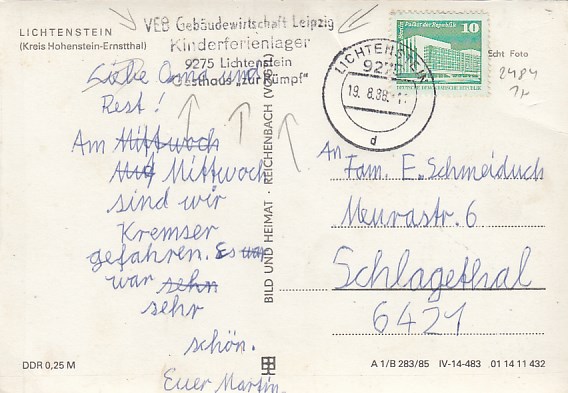 LICHTENSTEIN
(Kreis Hohenstein-Ernstthal)
VEB Gebäudewirtschaft Leipzig
Kinderferienlager
9275 Lichtenstein
Gasthaus „zur Kümpf“
LICHTENSTEIN
9275
19.8.88
d
Palast der Republik
10
DEUTSCHE DEMOKRATISCHE REPUBLIK
Echt Foto
2484
Liebe Oma und
Rest!
Am Mittwoch
Mit Mittwoch
sind wir
Kremser
gefahren. Es war
war sehn
sehr
schön.
Euer Martin.
BILD UND HEIMAT · REICHENBACH (VOGTL)
An Fam. E. Schmeiduch
Meurastr. 6
Schlagethal
6421
DDR 0,25 M
A 1/B 283/85 IV-14-483 01 14 11 432